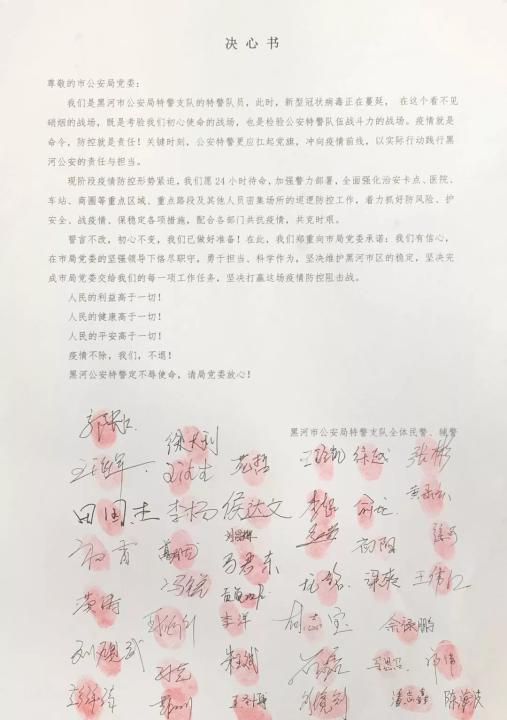 决心书
尊敬的市公安局党委：
我们是黑河市公安局特警支队的特警队员，此时，新型冠状病毒正在蔓延，在这个看不见
硝烟的战场，既是考验我们初心使命的战场，也是检验公安特警队伍战斗力的战场。疫情就是
命令，防控就是责任！关键时刻，公安特警更应扛起党旗，冲向疫情前线，以实际行动践行黑
河公安的责任与担当。
现阶段疫情防控形势紧迫，我们愿24小时待命，加强警力部署，全面强化治安卡点、医院、
车站、商圈等重点区域、重点路段及其他人员密集场所的巡逻防控工作，着力抓好防风险、护
安全、战疫情、保稳定各项措施，配合各部门共抗疫情，共克时艰。
誓言不改，初心不变，我们已做好准备！在此，我们郑重向市局党委承诺：我们有信心，
在市局党委的坚强领导下恪尽职守，勇于担当、科学作为，坚决维护黑河市区的稳定，坚决完
成市局党委交给我们的每一项工作任务，坚决打赢这场疫情防控阻击战。
人民的利益高于一切！
人民的健康高于一切！
人民的平安高于一切！
疫情不除，我们，不退！
黑河公安特警定不辱使命，请局党委放心！
黑河市公安局特警支队全体民警、辅警
徐大利
苑哲 徐越 张彬
田国杰 李杨 侯达文
马君东 初阳
冯锐 梁爽 王伟江
黄涛 李洋 余泳鹏
朱斌